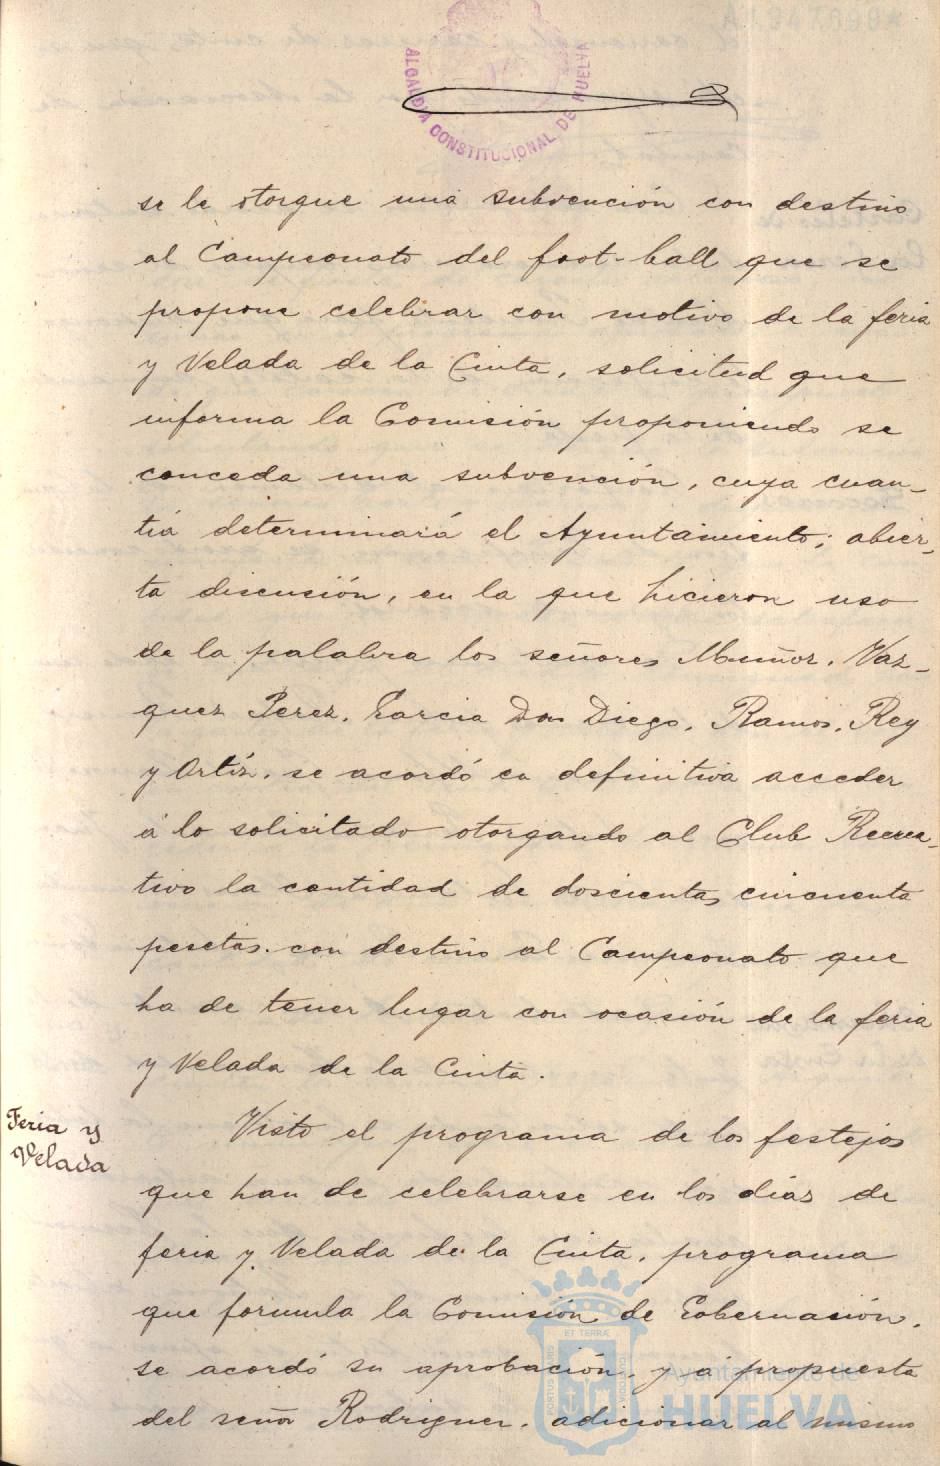 ALCALDIA CONSTITUCIONAL DE HUELVA
se le otorgue una subvención con destino
al Campeonato del foot-ball que se
propone celebrar con motivo de la feria
y Velada de la Cinta, solicitud que
informa la Comisión proponiendo se
conceda una subvención, cuya cuan-
tía determinará el Ayuntamiento; abier-
ta discusión, en la que hicieron uso
de la palabra los señores Muñoz, Vaz-
quez Perez, Garcia Don Diego, Ramos, Rey
y Ortíz, se acordó en definitiva acceder
á lo solicitado otorgando al Club Recrea-
tivo la cantidad de doscientas cincuenta
pesetas con destino al Campeonato que
ha de tener lugar con ocasión de la feria
y Velada de la Cinta.
Feria y
Velada
Visto el programa de los festejos
que han de celebrarse en los días de
feria y Velada de la Cinta, programa
que formula la Comisión de Gobernación,
se acordó su aprobación, y á propuesta
del señor Rodriguez, adicionar al mismo
ET TERRÆ
PORTUS MARIS
CUSTODIA
Ayuntamiento de
HUELVA